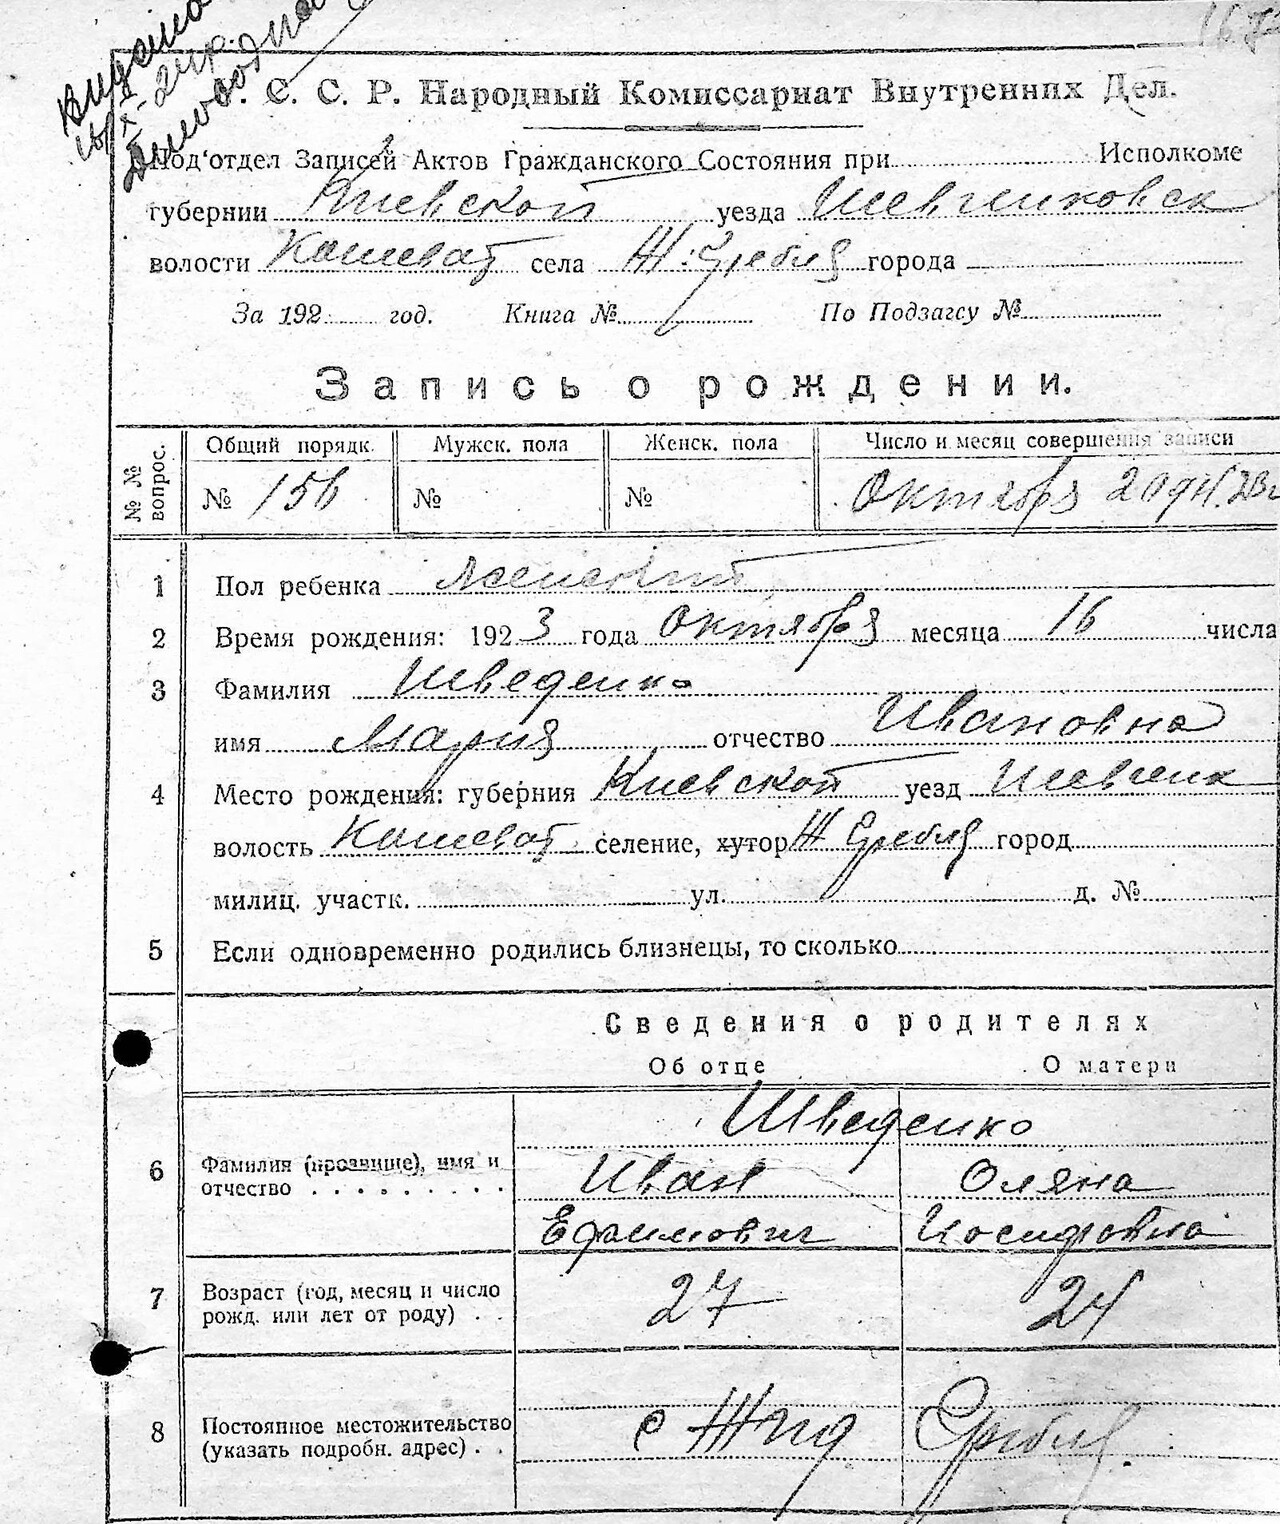 Видана
С. С. Р. Народный Комиссариат Внутренних Дел.
Под'отдел Записей Актов Гражданского Состояния при Исполкоме
губернии Киевской уезда Шевченковск
волости Кошеват села Ж. Гребля города
За 192 год. Книга № По Подзагсу №
Запись о рождении.
№ № вопрос. Общий порядк. Мужск. пола Женск. пола Число и месяц совершения записи
№ 156 № № Октября 20 дн. 23 г
1 Пол ребенка Женский
2 Время рождения: 1923 года Октября месяца 16 числа
3 Фамилия Шведенко
имя Мария отчество Ивановна
4 Место рождения: губерния Киевской уезд Шевченк
волость Кошеват селение, хутор Ж Гребля город
милиц. участк. ул. д. №
5 Если одновременно родились близнецы, то сколько
Сведения о родителях
Об отце О матери
Шведенко
6 Фамилия (прозвище), имя и Иван Оляна
отчество Ефимович Иосифовна
7 Возраст (год, месяц и число 27 24
рожд. или лет от роду)
8 Постоянное местожительство с Жид Гребля
(указать подробн. адрес)